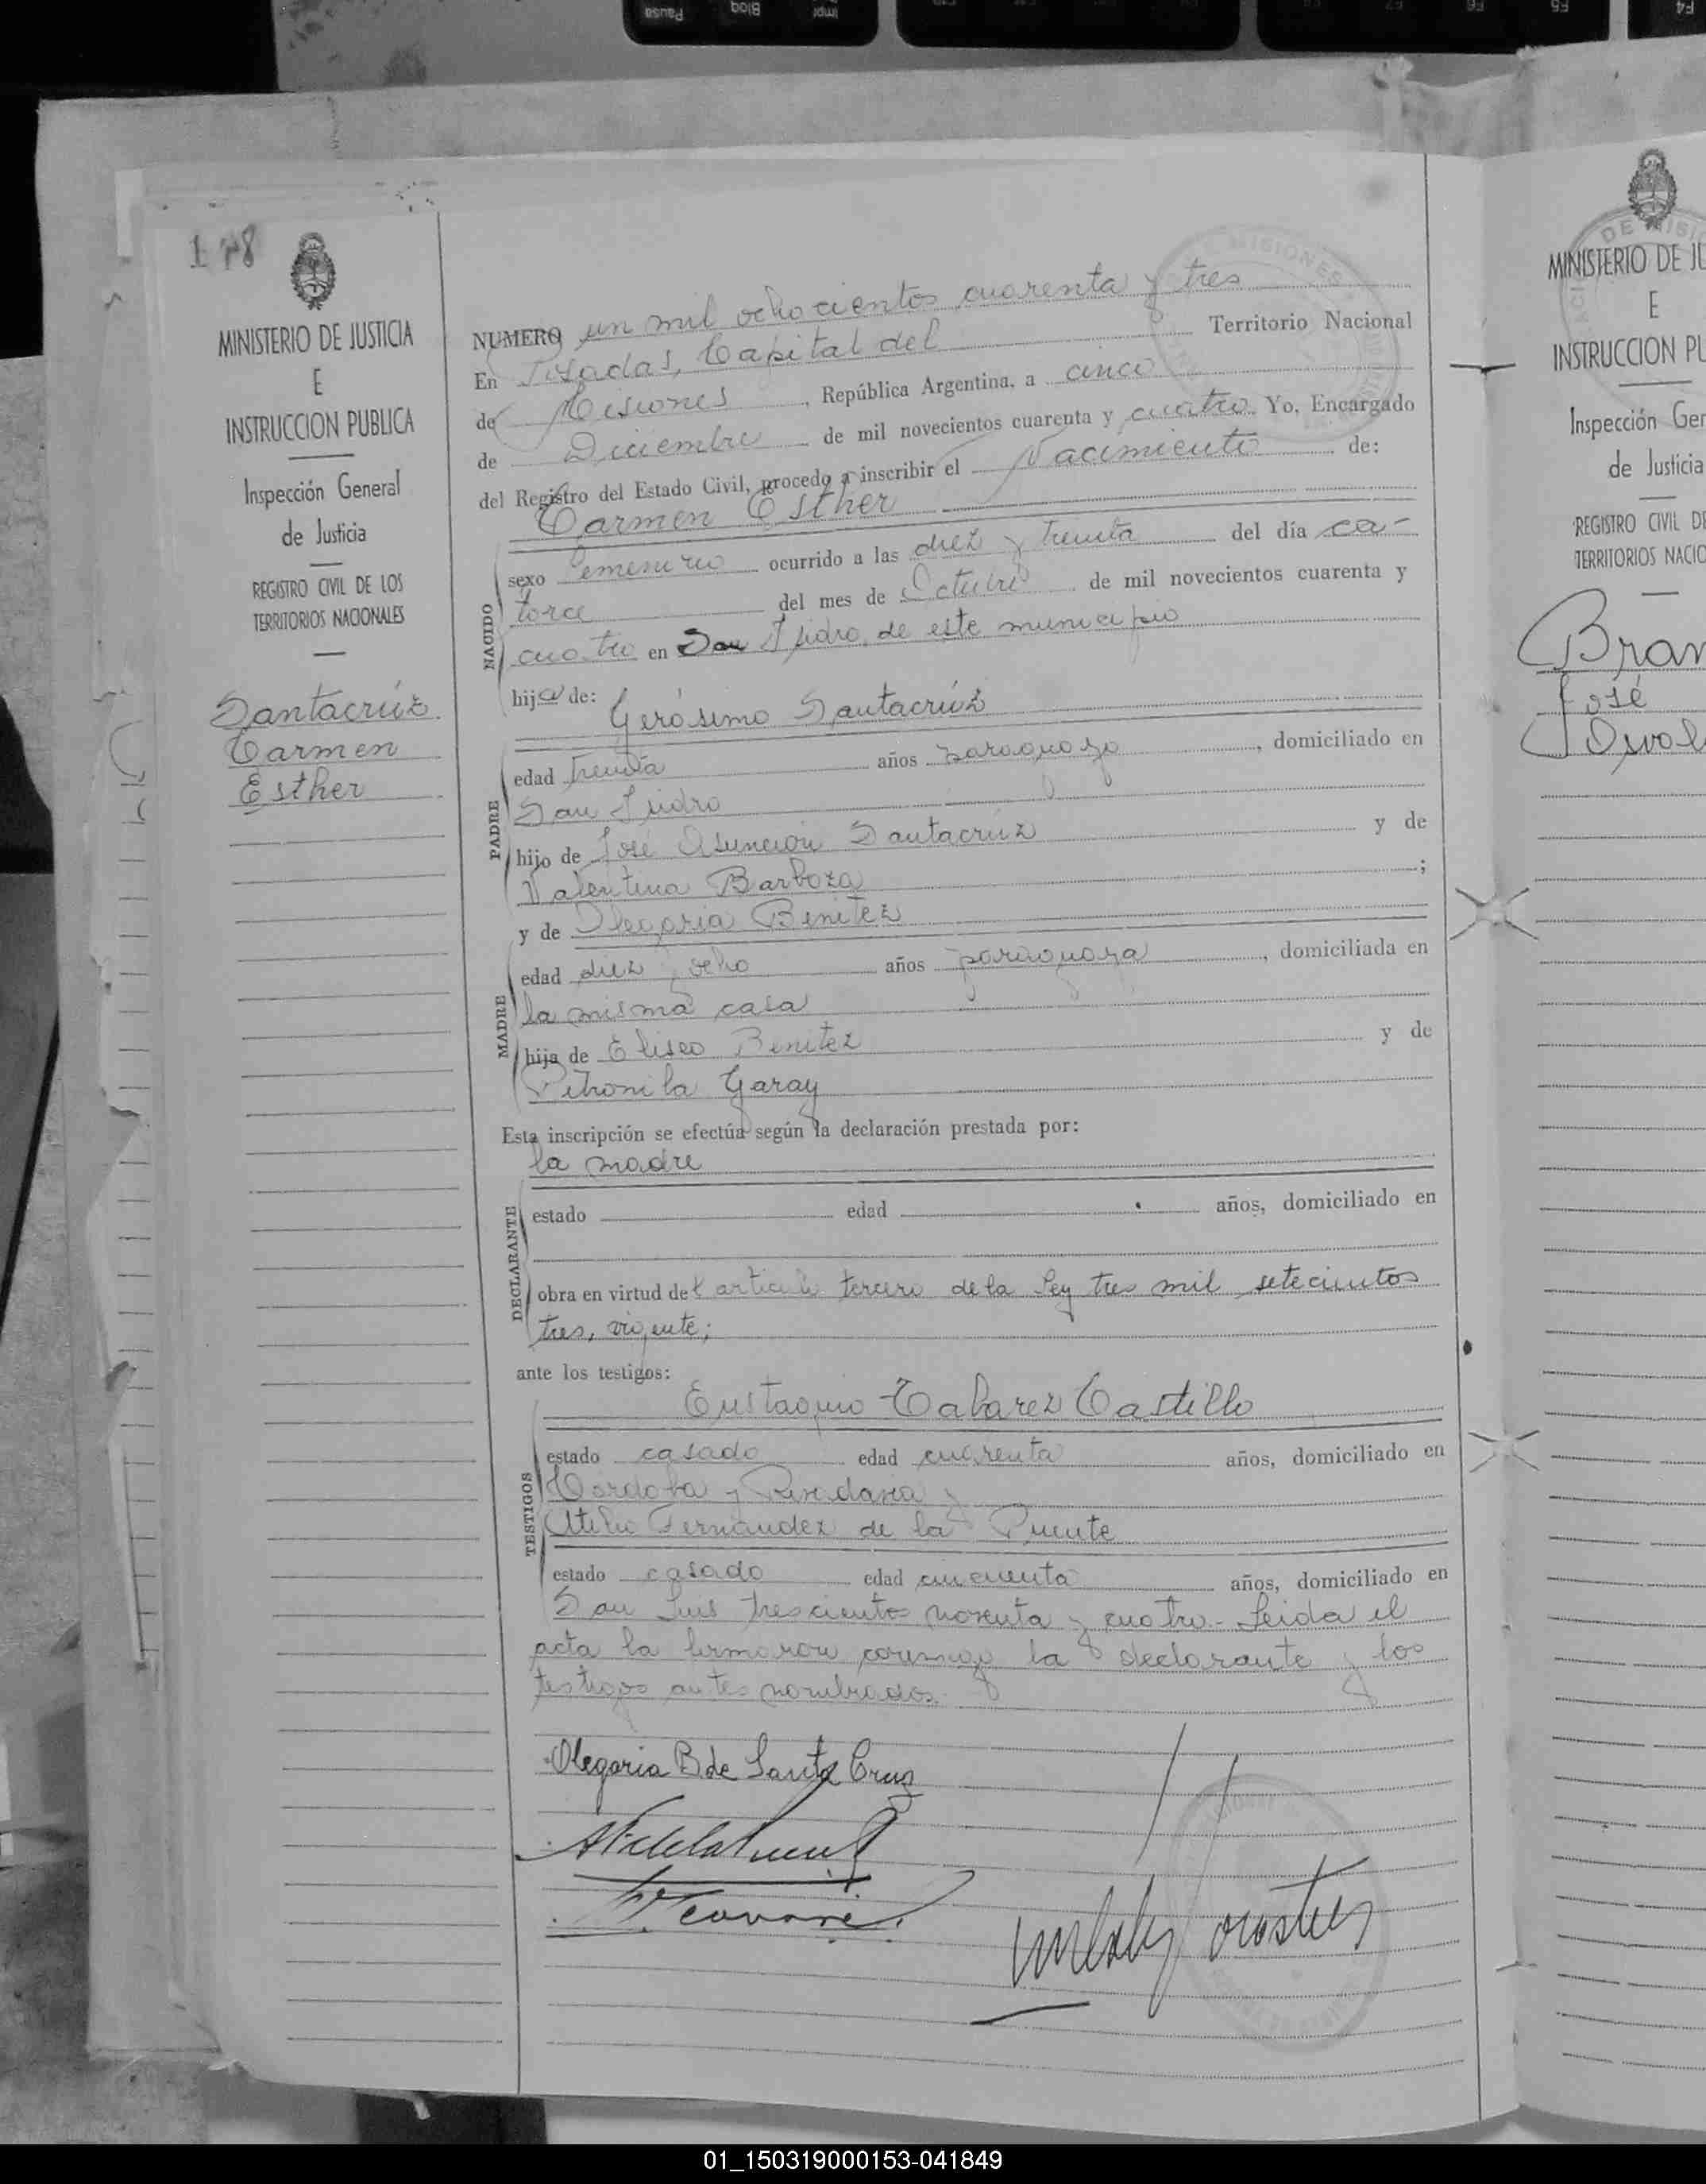 Pausa
Bloq
Impr
F6
F5
F4
178
MINISTERIO DE JUSTICIA
E
INSTRUCCION PUBLICA
Inspección General
de Justicia
REGISTRO CIVIL DE LOS
TERRITORIOS NACIONALES
Santacrúz
Carmen
Esther
NUMERO un mil ochocientos cuarenta y tres
En Posadas, Capital del Territorio Nacional
de Misiones, República Argentina, a cinco
de Diciembre de mil novecientos cuarenta y cuatro Yo, Encargado
del Registro del Estado Civil, procedo a inscribir el Nacimiento de:
Carmen Esther
NACIDO
sexo femenino ocurrido a las diez y treinta del día ca-
torce del mes de Octubre de mil novecientos cuarenta y
cuatro en San Isidro, de este municipio
hija de: Gerósimo Santacrúz
PADRE
edad treinta años paraguayo, domiciliado en
San Isidro
hijo de José Asunción Santacruz y de
Valentina Barboza;
y de Olegaria Benitez
MADRE
edad diez y ocho años paraguaya, domiciliada en
la misma casa
hija de Eliseo Benitez y de
Petronila Garay
Esta inscripción se efectúa según la declaración prestada por:
la madre
DECLARANTE
estado edad años, domiciliado en
obra en virtud del articulo tercero de la Ley tres mil setecientos
tres, vigente;
ante los testigos:
Eustaquio Tabarez Castillo
TESTIGOS
estado casado edad cuarenta años, domiciliado en
Cordoba y Rivadavia y
Atilio Fernández de la Puente
estado casado edad cincuenta años, domiciliado en
San Luis trescientos noventa y cuatro.- Leida el
acta la firmaron conmigo la declarante y los
testigos antes nombrados.
Olegaria B de Santa Cruz
DE MISIONES
MINISTERIO DE JU
E
INSTRUCCION PU
Inspección Gen
de Justicia
REGISTRO CIVIL DE
TERRITORIOS NACIO
José
Osval
01_150319000153-041849